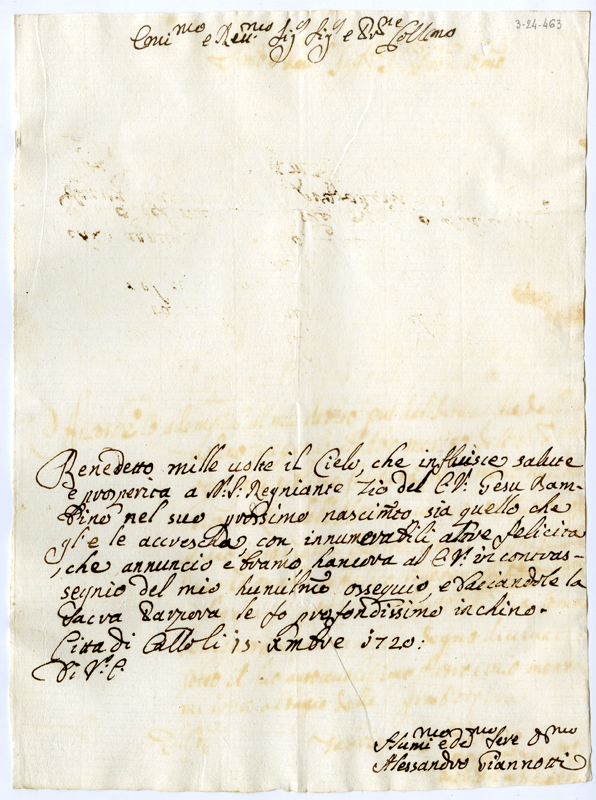 3-24-463
Emi.mo e Reu.mo Sig.r Sig.r e P.rone Coll.mo
Benedetto mille uolte il Cielo, che influisce salute
e prosperita a N.S. Regniante Zio del E.V. Gesu Bam-
bino nel suo prossimo nascim.to sia quello che
gl'e le accresca, con innumerabili altre felicita
, che annuncio e bramo, hancora al E.V. in contras-
segnio del mio humilmo ossequio, e bacciandole la
sacra Porpora le fo profondissimo inchino.
Citta di Castello li 15 Xmbre 1720:
Di V.E.
Humi.mo e de.mo Sere O.mo
Alessandro Giannotti